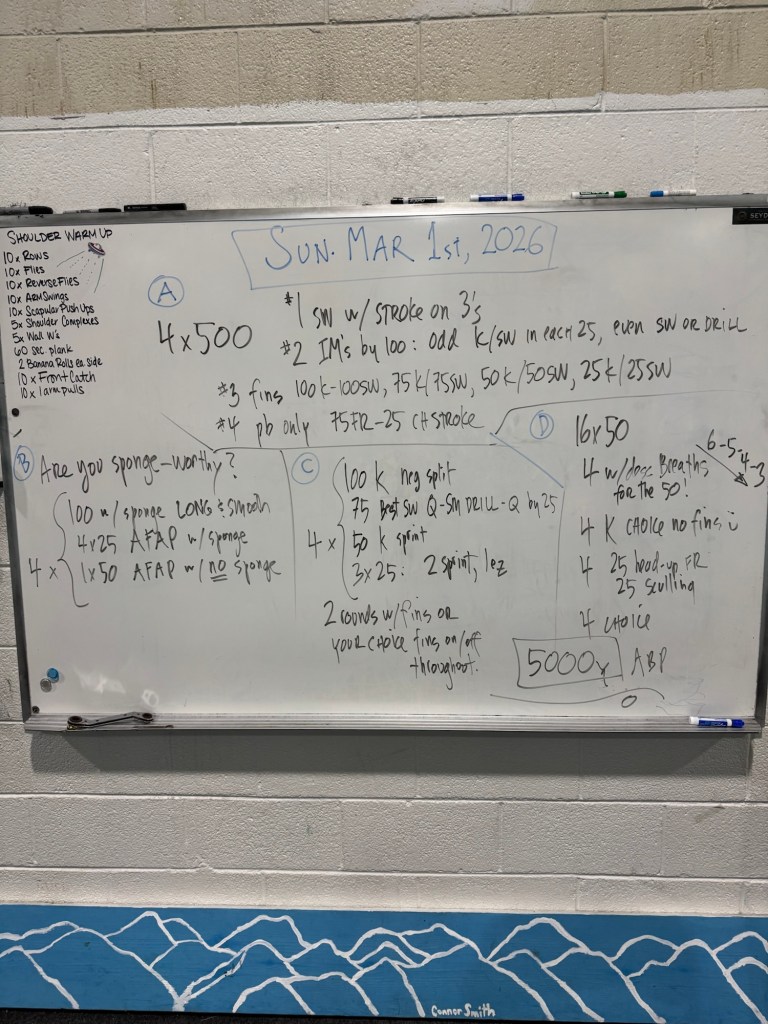 SUN. MAR 1st, 2026
SEYD
SHOULDER WARM UP
10x Rows
10x Flies
10x Reverse Flies
10x Arm Swings
10x Scapular Push Ups
5x Shoulder Complexes
5x Wall W's
60 sec. plank
2 Banana Rolls ea. side
10x Front Catch
10x 1 arm pulls
A
4x500
#1 SW w/ STROKE on 3's
#2 IM's by 100: odd K/SW in each 25, even SW OR DRILL
#3 fins 100K-100SW, 75K/75SW, 50K/50SW, 25K/25SW
#4 pb only 75FR-25 CH STROKE
B
Are you sponge-worthy?
4x
100 w/ sponge LONG & smooth
4x25 AFAP w/ sponge
1x50 AFAP w/ no sponge
C
4x
100 K neg split
75 Best SW Q-SM DRILL-Q by 25
50 K sprint
3x25: 2 sprint, 1ez
2 rounds w/ fins OR
YOUR CHOICE fins on/off
throughout.
D
16x50
4 w/ desc Breaths
for the 50!
6-5-4-3
4 K CHOICE no fins
4 25 head-up FR
25 sculling
4 CHOICE
5000y ABP
Connor Smith